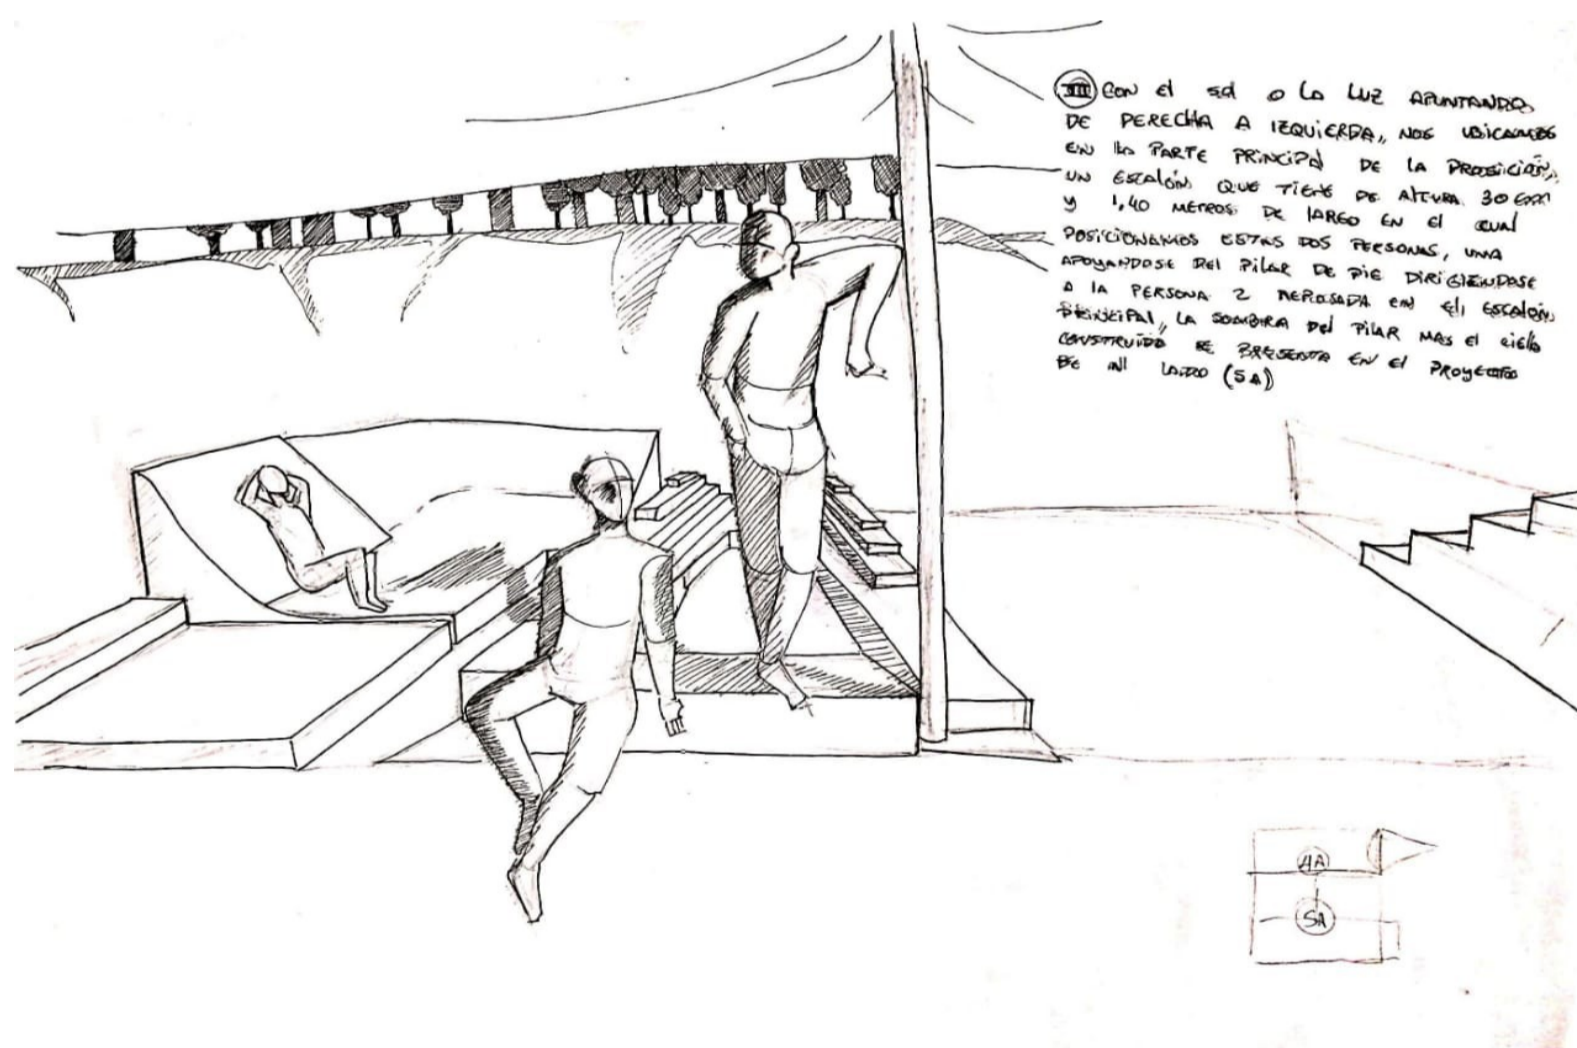 VII CON El sol o LA LUZ APUNTANDO
DE DERECHA A IZQUIERDA,, NOS UBICAMOS
EN LA PARTE PRINCIPAl DE LA PROPOSICIÓN,,
UN ESCALÓN QUE TIENE DE ALTURA 30 cm
y 1,40 METROS DE lARGO EN El CUAl
POSICIONAMOS ESTAS DOS PERSONAS, UNA
APOYANDOSE DEl PilAR DE PIE DIRIGIENDOSE
A lA PERSONA 2 REPOSADA EN El ESCALÓN
PRINCIPAl,, LA SOMBRA DEl PilAR MAS El CIElo
CONSTRUIDO SE PRESENTA EN El PROYECTO
DE MI LADO (5A)
4A
5A